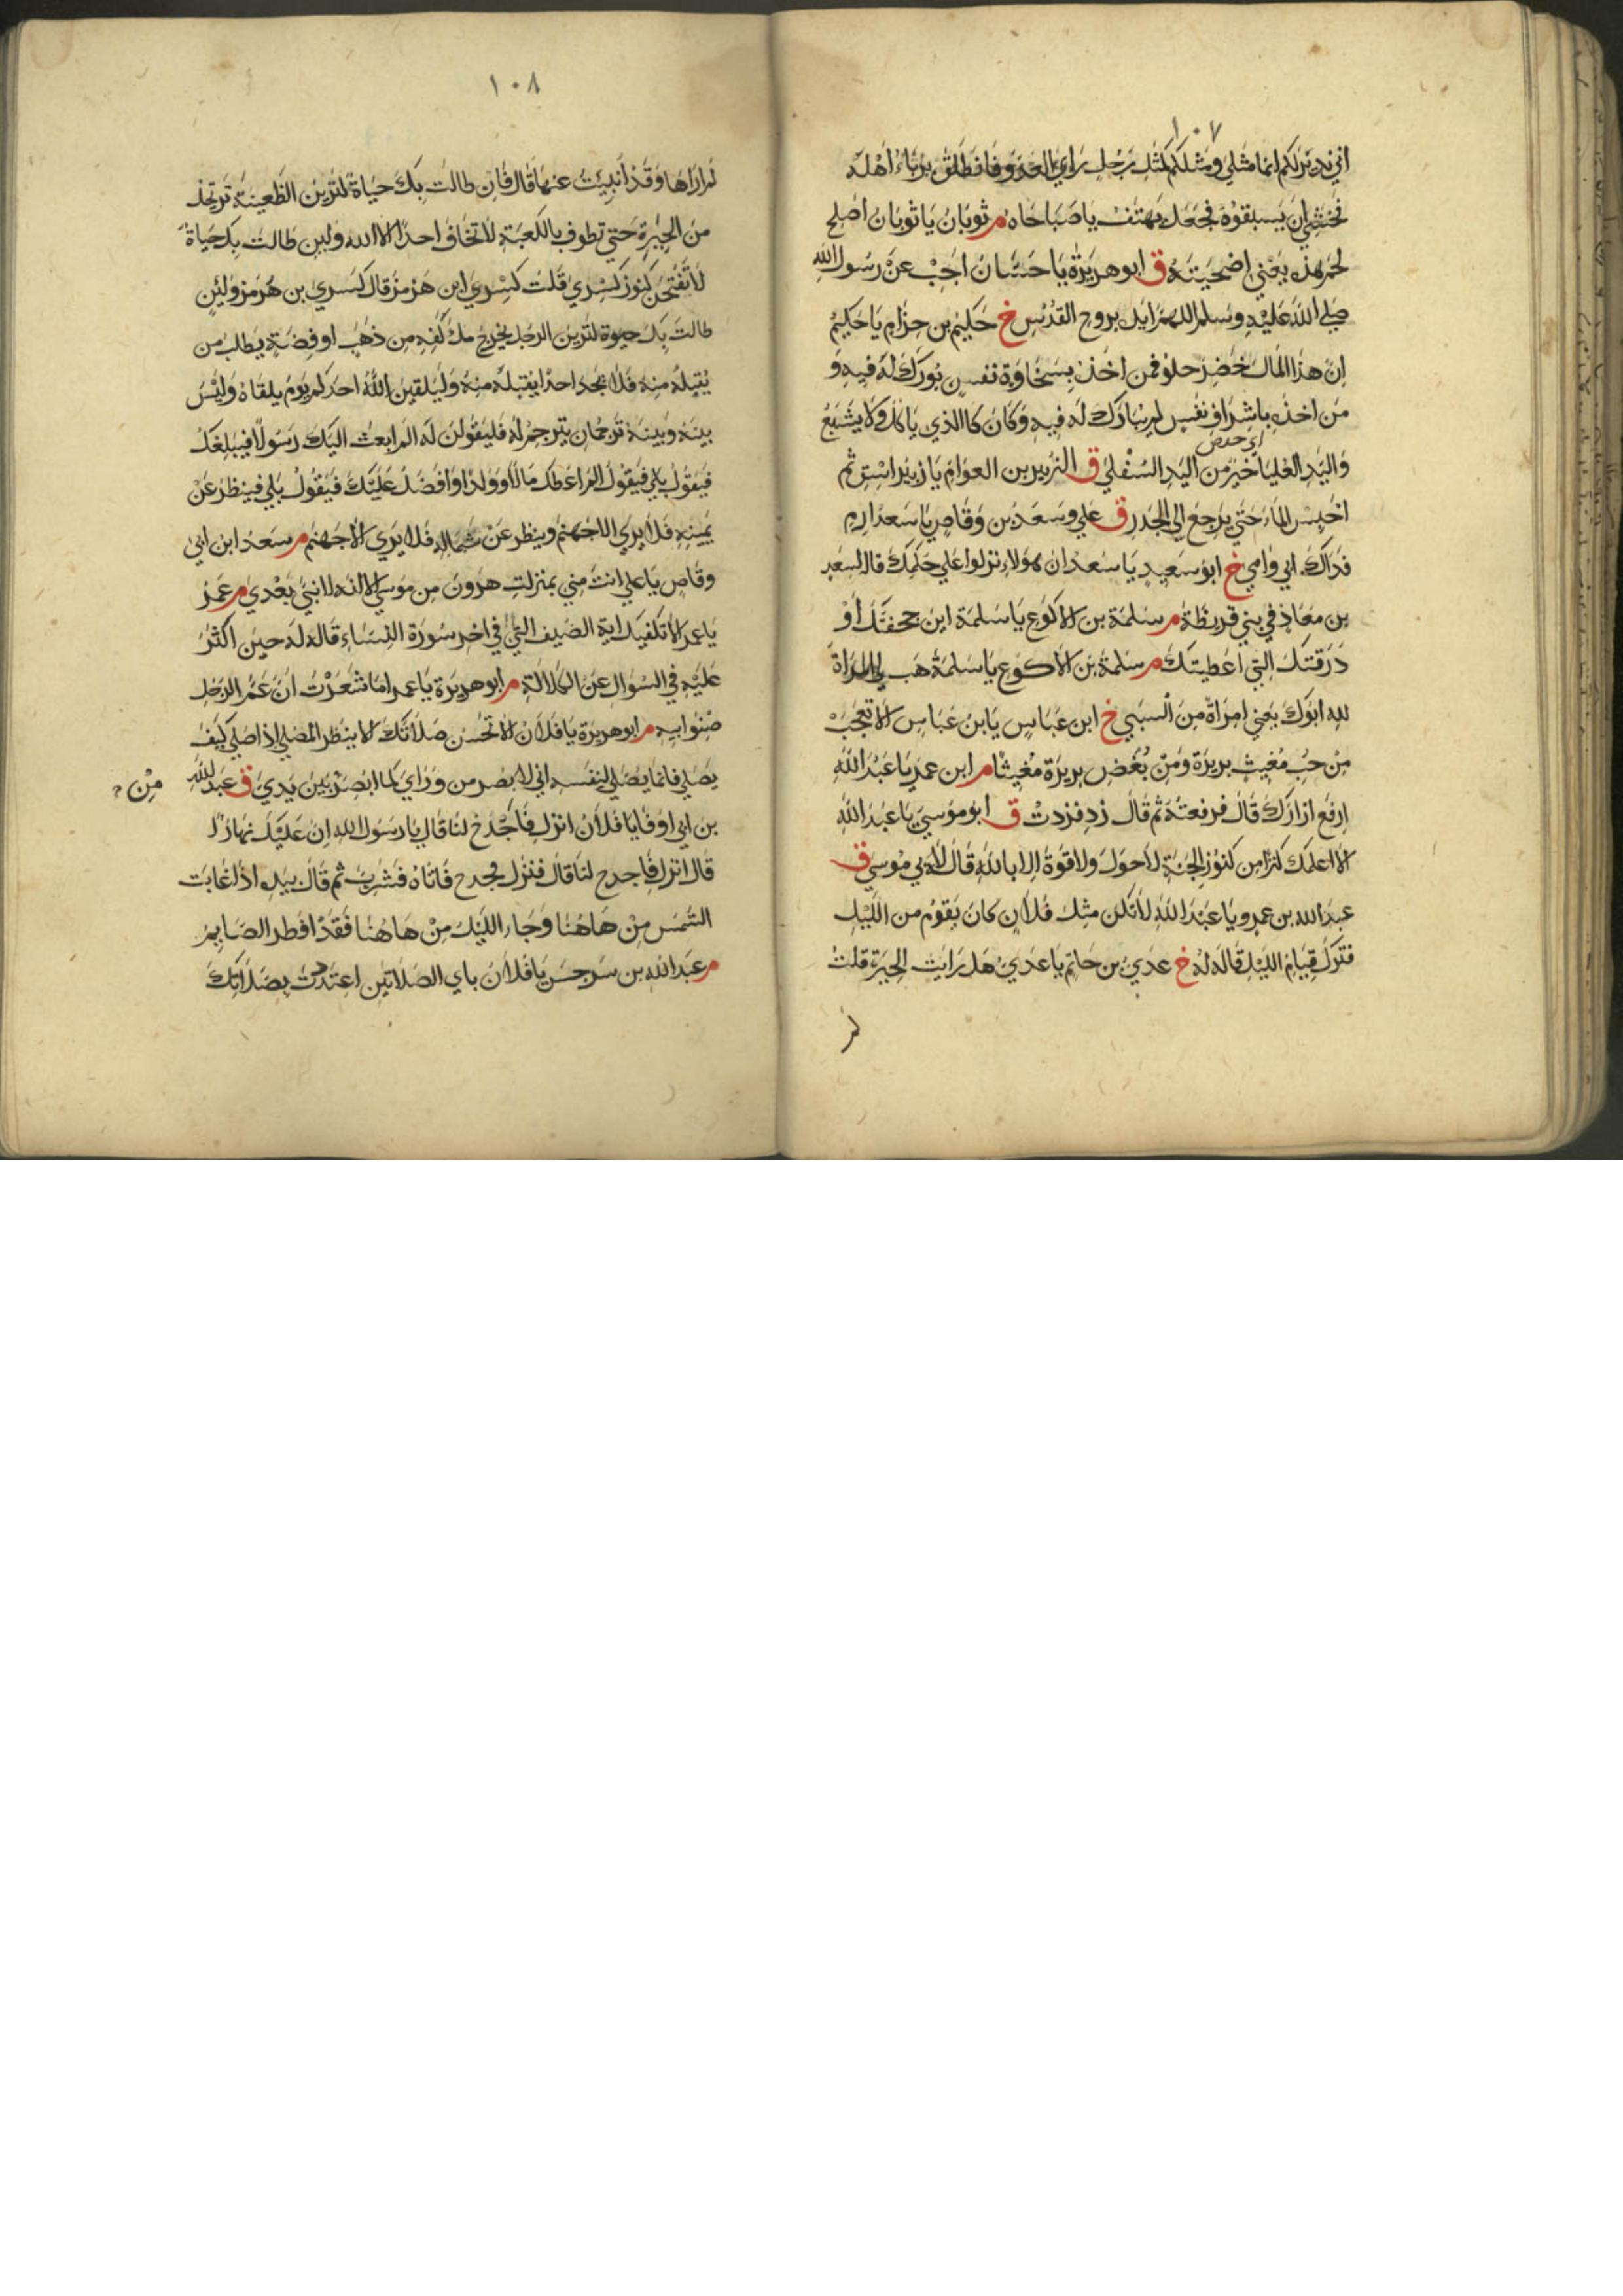 ١٠٧
اني نذير لكم انما مثلي ومثلكم كمثل رجل راي العدو فانطلق يرباء اهله
فخشي ان يسبقوه فجعل يهتف يا صباحاه م ثوبان يا ثوبان اصلح
لحم هذه يعني اضحيته ق ابو هريرة يا حسان اجب عن رسول الله
صلي الله عليه وسلم اللهم ايده بروح القدس خ حكيم بن حزام يا حكيم
ان هذا المال خضر حلو فمن اخذه بسخاوة نفس بورك له فيه و
من اخذه باشراف نفس لم يبارك له فيه وكان كاالذي ياكل ولا يشبع
اي حرص
واليد العليا خير من اليد السفلي ق الزبير بن العوام يا زبير اسق ثم
احبس الماء حتي يرجع الي الجدر ق علي وسعد بن وقاص يا سعد ارم
فداك ابي وامي خ ابو سعيد يا سعد ان هولاء نزلوا علي حكمك قاله لسعد
بن معاذ في بني قريظة م سلمة بن الاكوع يا سلمة اين جحفتك او
درقتك التي اعطيتك م سلمة بن الاكوع يا سلمة هب لي المراة
لله ابوك يعني امراة من السبي خ ابن عباس يا بن عباس الا تعجب
من حب مغيث بريرة ومن بغض بريرة مغيثا م ابن عمر يا عبد الله
ارفع ازارك قال فرفعته ثم قال زد فزدت ق ابو موسي يا عبد الله
الا اعلمك كنزا من كنوز الجنة لا حول ولا قوة الا بالله قال لابي موسي ق
عبد الله بن عمرو يا عبد الله لا تكن مثل فلان كان يقوم من الليل
فترك قيام الليل قاله له خ عدي بن حاتم يا عدي هل رايت الحيرة قلت
لم
١٠٨
لم اراها وقد انبيت عنها قال فان طالت بك حياة لترين الظعينة ترتحل
من الحيرة حتي تطوف بالكعبة لا تخاف احدا الا الله ولين طالت بك حياة
لا تفتحن كنوز كسري قلت كسري ابن هرمز قال كسري بن هرمز ولئن
طالت بك حيوة لترين الرجل يخرج ملء كفه من ذهب او فضة يطلب من
يقبله منه فلا يجد احدا يقبله منه وليلقين الله احدكم يوم يلقاه وليس
بينه وبينه ترجمان يترجم له فليقولن له الم ابعث اليك رسولا فيبلغك
فيقول بلي فيقول الم اعطك مالا وولدا وافضل عليك فيقول بلي فينظر عن
يمينه فلا يري الا جهنم وينظر عن شماله فلا يري الا جهنم م سعد ابن ابي
وقاص يا علي انت مني بمنزلت هرون من موسي الا انه لا نبي بعدي م عمر
يا عمر الا تكفيك اية الصيف التي في اخر سورة النساء قاله له حين اكثر
عليه في السوال عن الكلالة م ابو هريرة يا عمر اما شعرت ان عم الرجل
صنو ابيه م ابو هريرة يا فلان الا تحسن صلاتك الا ينظر المصلي اذا صلي كيف
يصلي فانما يصلي لنفسه اني لا بصر من وراي كما ابصر بين يدي ق عبد الله
من
بن ابي اوفا يا فلان انزل فاجدح لنا قال يا رسول الله ان عليك نهارا
قال انزل فاجدح لنا قال فنزل فجدح فاتاه فشرب ثم قال بيده اذا غابت
الشمس من هاهنا وجاء الليل من هاهنا فقد افطر الصايم
م عبد الله بن سرجس يا فلان باي الصلاتين اعتددت بصلاتك